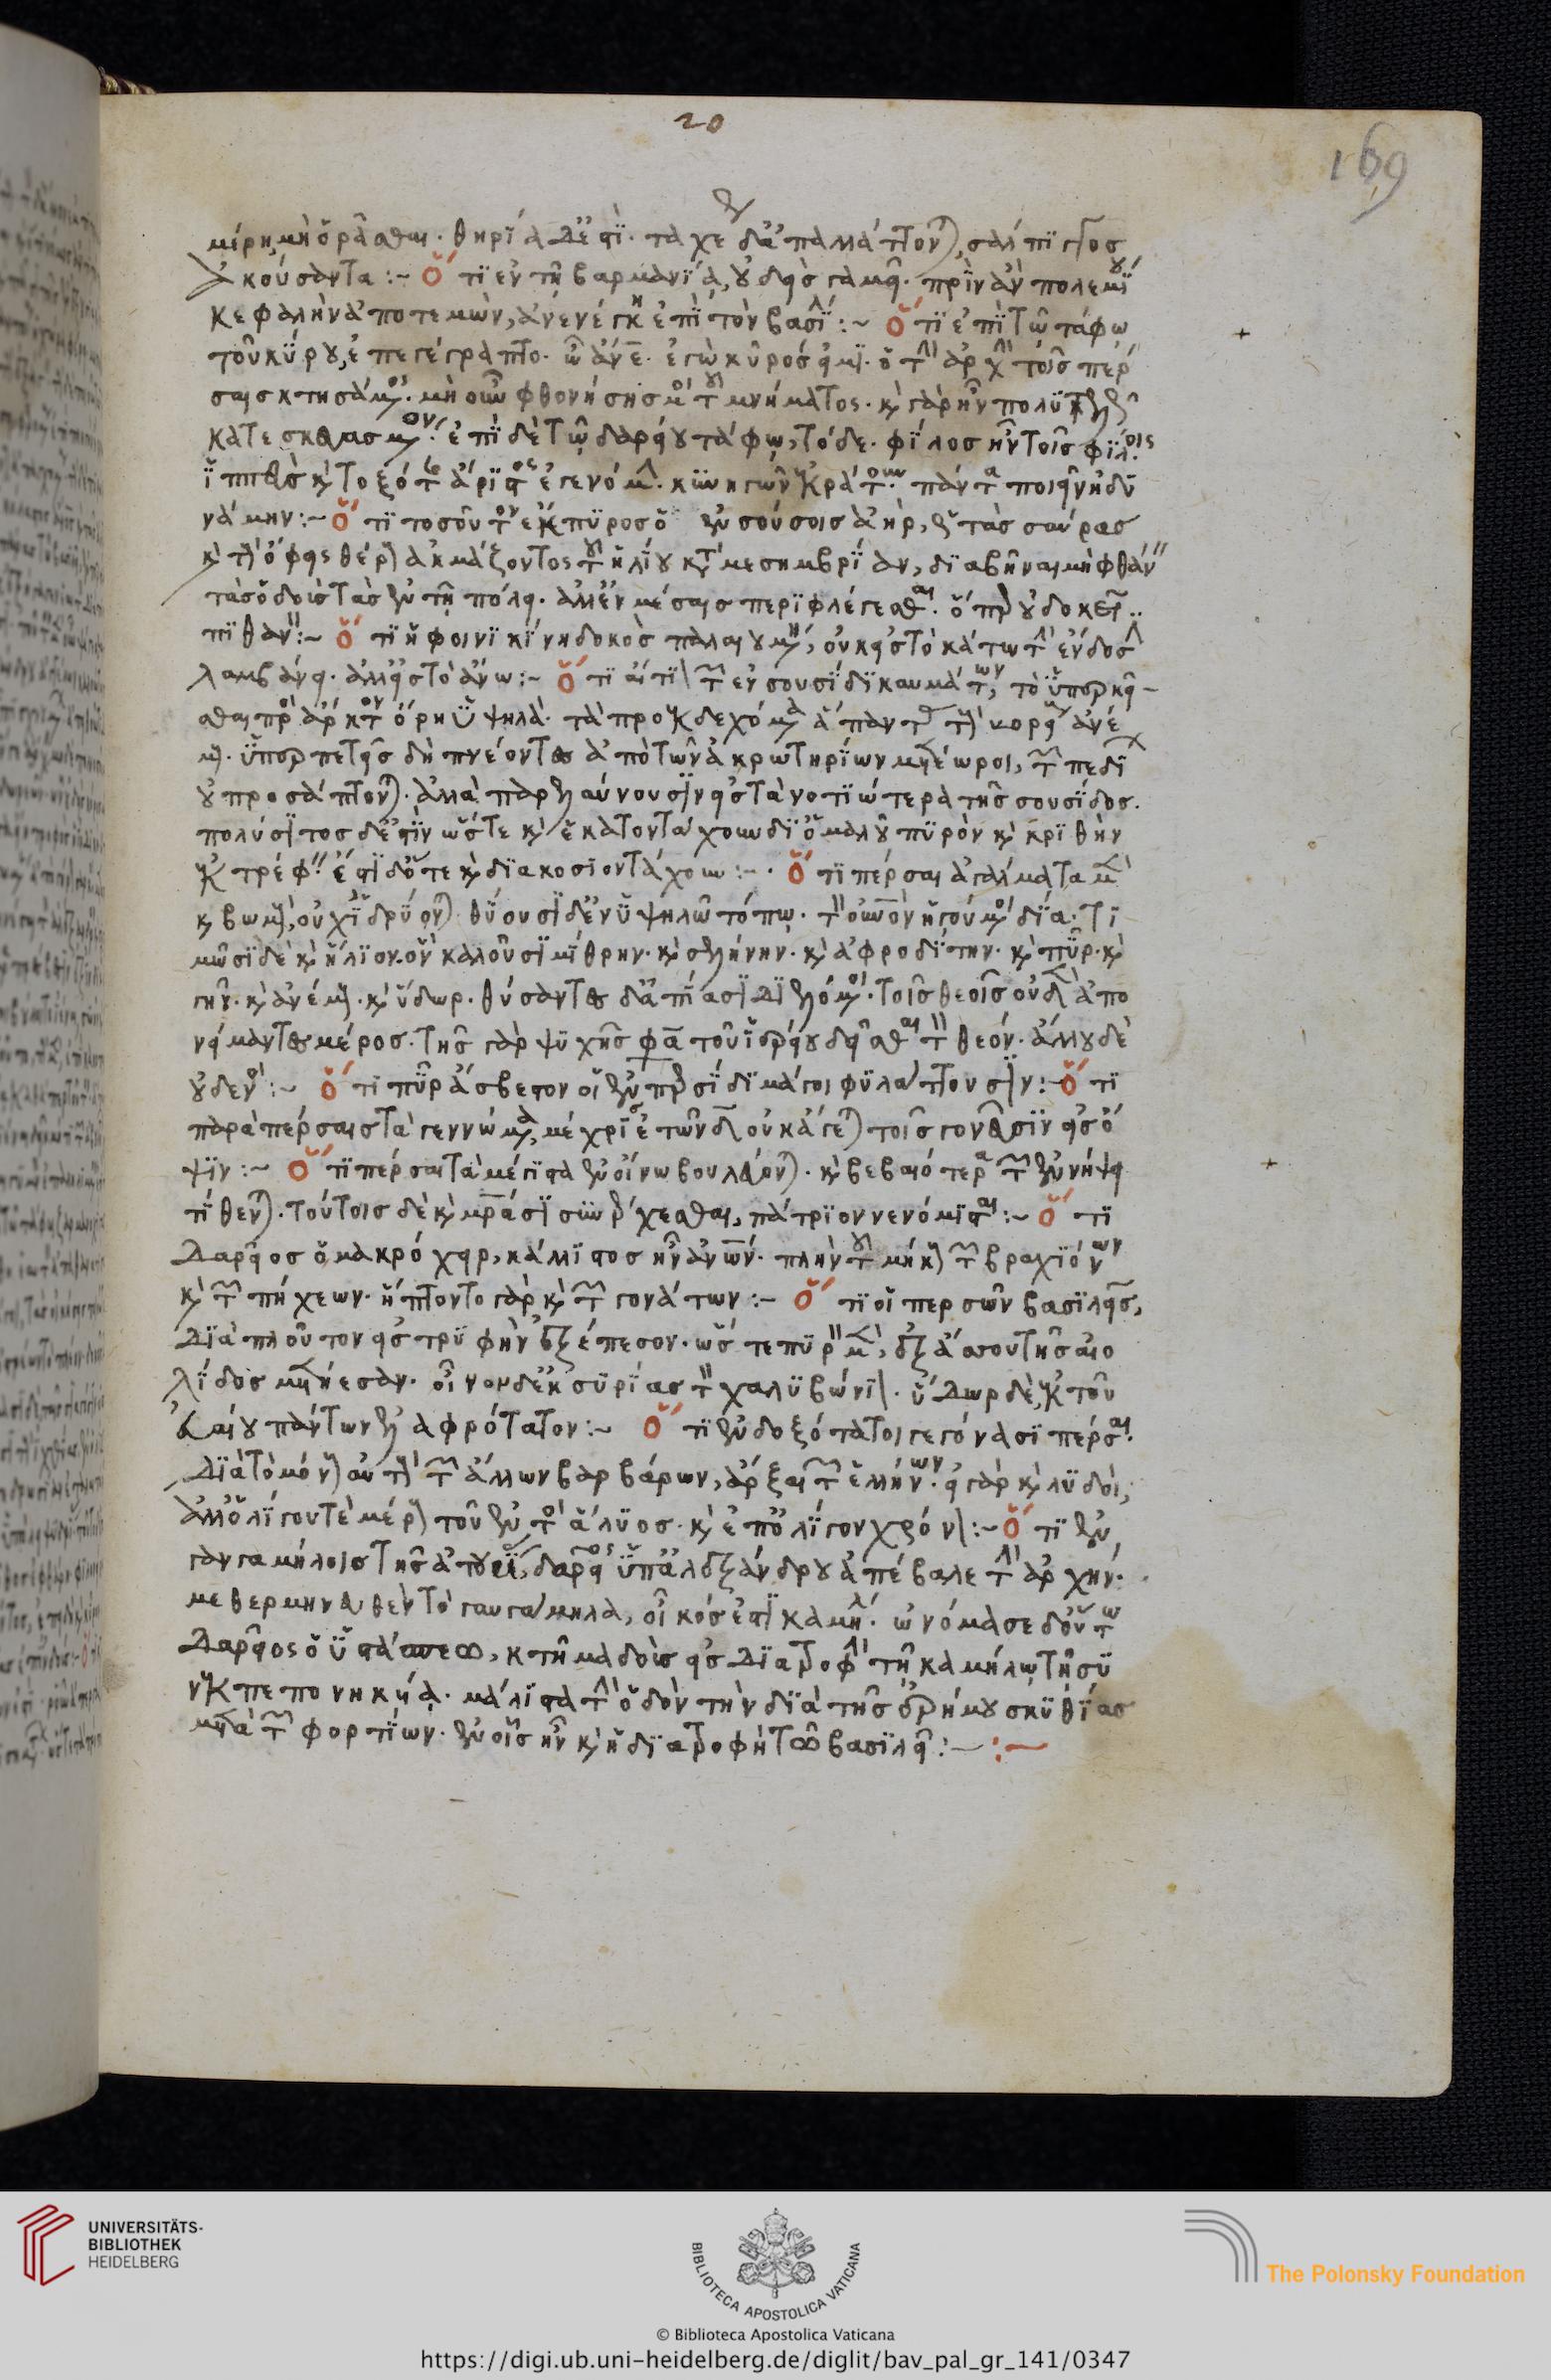 20
169
μέρη μὴ ὁρᾶσθαι. θηρία δέ ἐστι. τάχει δὲ ἀπαλλάττονται, σάλπιγγος
ἀκούσαντα :~ Ὅτι ἐν τῇ Καρμανίᾳ, οὐδεὶς γαμεῖ. πρὶν ἂν πολεμίου
κεφαλὴν ἀποτεμὼν, ἀνενέγκῃ ἐπὶ τὸν βασιλέα :~ Ὅτι ἐπὶ τῷ τάφῳ
τοῦ κύρου, ἐπεγέγραπτο. ὦ ἄνθρωπε. ἐγὼ κῦρός εἰμι. ὁ τὴν ἀρχὴν τοῖς πέρ
σαις κτησάμενος. μὴ οὖν φθονήσῃς μοι τοῦ μνήματος. καὶ γὰρ ἦν πολυτελῶς
κατεσκευασμένον. ἐπὶ δὲ τῷ δαρείου τάφῳ, τόδε. φίλος ἦν τοῖς φίλοις
ἱππεὺς καὶ τοξότης ἄριστος ἐγενόμην. κυνηγῶν ἐκράτουν. πάντα ποιεῖν ἠδυ
νάμην :~ Ὅτι τοσοῦτον ἔκπυρος ὁ ἐν σούσοις ἀὴρ, ὥστε τὰς σαύρας
καὶ τοὺς ὄφεις θέρους ἀκμάζοντος τοῦ ἡλίου κατὰ μεσημβρίαν, διαβῆναι μὴ φθάνειν
τὰς ὁδοὺς τὰς ἐν τῇ πόλει. ἀλλ' ἐν μέσαις περιφλέγεσθαι. ὅπερ οὐ δοκεῖ
πιθανόν :~ Ὅτι
λαμβάνει. ἀλλ' εἰς τὸ ἄνω :~ Ὅτι αἴτιον τῶν ἐν σουσίδι καυμάτων, τὸ ὑπερκεῖ
σθαι πρὸς ἄρκτον ὄρη ὑψηλὰ. τὰ προεκδεχόμενα ἅπαντας τοὺς βορείους ἀνέ
μους. ὑπερπετεῖς δὴ πνέοντες ἀπὸ τῶν ἀκρωτηρίων μετέωροι, τῶν πεδίων
οὐ προσάπτονται. ἀλλὰ παρελαύνουσιν εἰς τὰ νοτιώτερα τῆς σουσίδος.
πολύσιτος δέ ἐστιν ὥστε καὶ ἑκατοντάχουν δι' ὁμαλοῦ πυρὸν καὶ κριθὴν
ἐκτρέφειν. ἔστι δ' ὅτε καὶ διακοσιοντάχουν :~ Ὅτι πέρσαι ἀγάλματα μὲν
καὶ βωμοὺς, οὐχ ἱδρύονται. θύουσι δ' ἐν ὑψηλῷ τόπῳ. τὸν οὐρανὸν ἡγούμενοι δία. τι
μῶσι δὲ καὶ ἥλιον. ὃν καλοῦσι μίθρην. καὶ σελήνην. καὶ ἀφροδίτην. καὶ πῦρ. καὶ
γῆν. καὶ ἀνέμους. καὶ ὕδωρ. θύσαντες δ' ἅπασι διελόμενοι. τοῖς θεοῖς οὐδὲν ἀπο
νείμαντες μέρος. τῆς γὰρ ψυχῆς φασὶ τοῦ ἱερείου δεῖσθαι τὸν θεόν. ἄλλου δὲ
οὐδενὸς :~ Ὅτι πῦρ ἄσβεστον οἱ ἐν περσίδι μάγοι φυλάττουσιν :~ Ὅτι
παρὰ πέρσαις τὰ γεννώμενα, μέχρις ἐτῶν δ οὐκ ἄγεται τοῖς γονεῦσιν εἰς ὄ
ψιν :~ Ὅτι πέρσαι τὰ μέγιστα ἐν οἴνῳ βουλεύονται. καὶ βεβαιότερα τῶν ἐν νήψει
τίθενται. τούτοις δὲ καὶ μητράσι συνέρχεσθαι, πάτριον νενόμισται :~ Ὅτι
Δαρεῖος ὁ μακρόχειρ, κάλλιστος ἦν ἀνθρώπων. πλὴν τοῦ μήκους τῶν βραχιόνων
καὶ τῶν πήχεων. ἥπτοντο γὰρ καὶ τῶν γονάτων :~ Ὅτι οἱ περσῶν βασιλεῖς,
διὰ πλοῦτον εἰς τρυφὴν ἐξέπεσον. ὥστε πυρὸν μὲν, ἐξ ἄσσου τῆς αἰο
λίδος μετήεσαν. οἶνον δ' ἐκ συρίας τὸν χαλυβώνιον. ὕδωρ δὲ, ἐκ τοῦ
εὐλαίου πάντων ἐλαφρότατον :~ Ὅτι ἐνδοξότατοι γεγόνασι πέρσαι.
διὰ τὸ μόνους αὐτοὺς τῶν ἄλλων βαρβάρων, ἄρξαι τῶν ἑλλήνων. εἰ γὰρ καὶ λυδοὶ,
ἀλλ' ὀλίγου τε μέρους τοῦ ἐντὸς ἅλυος. καὶ ἐπ' ὀλίγον χρόνον :~ Ὅτι ἐν
γαυγαμήλοις τῆς ἀτουρίας, δαρεῖος ὑπ' ἀλεξάνδρου ἀπέβαλε τὴν ἀρχήν.
μεθερμηνευθὲν τὸ γαυγάμηλα, οἶκός ἐστι καμήλου. ὠνόμασε δ' οὕτω
Δαρεῖος ὁ ὑστάσπεω, κτῆμα δοὺς εἰς διατροφὴν τῇ καμήλῳ τῇ συ
νεκπεπονηκυίᾳ. μάλιστα τὴν ὁδὸν τὴν διὰ τῆς ἐρήμου σκυθίας
μετὰ τῶν φορτίων. ἐν οἷς ἦν καὶ ἡ διατροφὴ τῷ βασιλεῖ :~
UNIVERSITÄTS-
BIBLIOTHEK
HEIDELBERG
BIBLIOTECA APOSTOLICA VATICANA
The Polonsky Foundation
© Biblioteca Apostolica Vaticana
https://digi.ub.uni-heidelberg.de/diglit/bav_pal_gr_141/0347